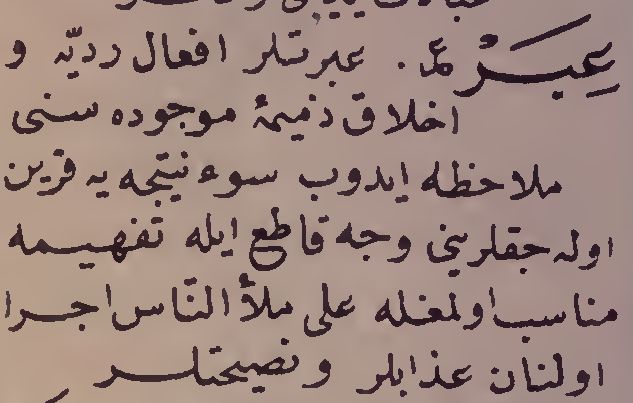 عِبَرْ ع. عبرتلر افعال رديّه و
اخلاق ذميمۀ موجوده سنی
ملاحظه ايدوب سوء نتيجه يه قرين
اوله جقلرينی وجه قاطع ايله تفهيمه
مناسب اولمغله علی ملأ الناس اجرا
اولنان عذابلر و نصيحتلر